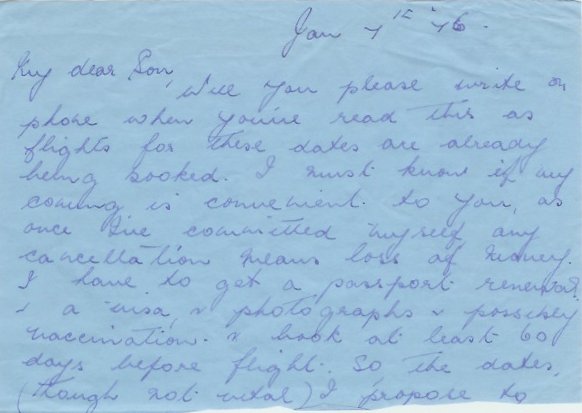 Jan 7th '76.
My dear Son,
Will you please write or
phone when you've read this as
flights for these dates are already
being booked. I must know if my
coming is convenient to you, as
once I've committed myself any
cancellation means loss of money.
I have to get a passport renewal
& a visa, & photographs & possibly
vaccination. & book at least 60
days before flight. So the dates,
(though not vital) I propose to